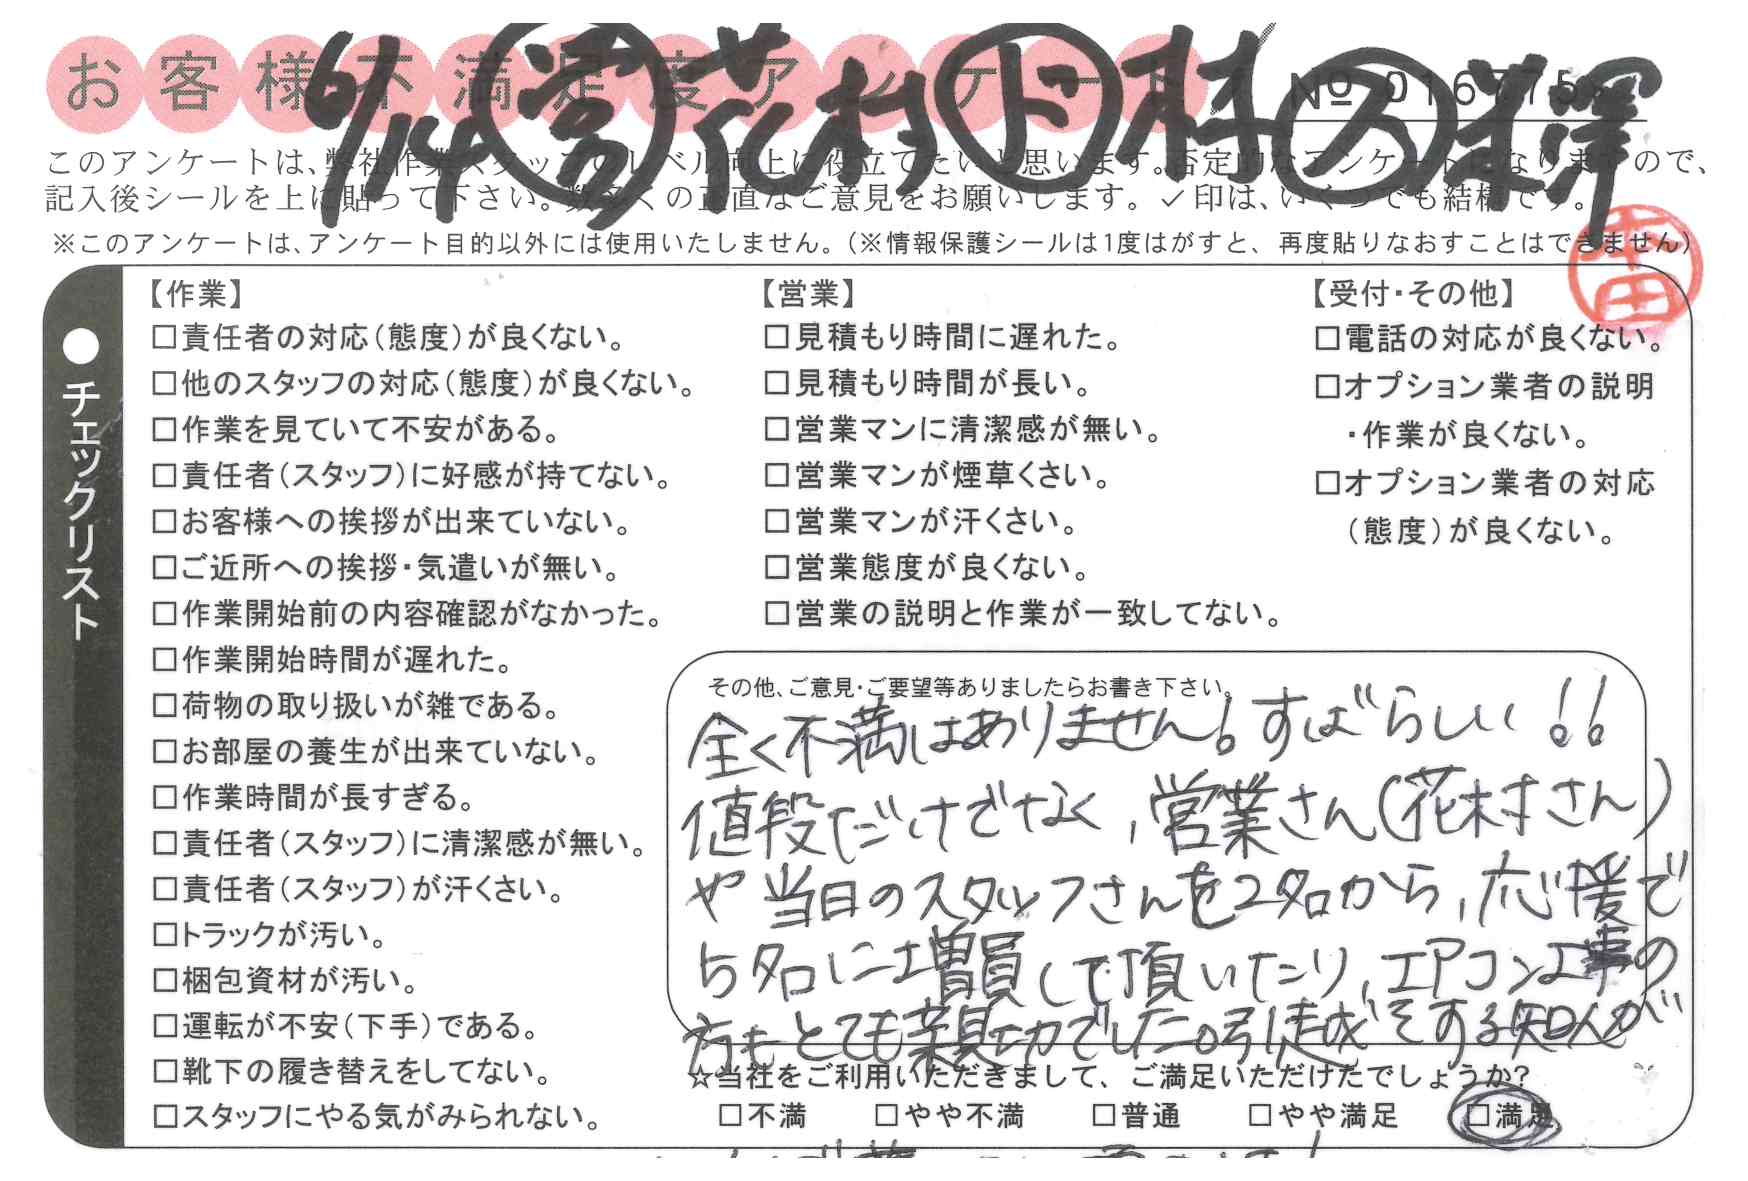 お客様不満足度アンケート
6/14 営 花村 ド 林 ス 澤
No 016775
このアンケートは、弊社作業スタッフのレベル向上に役立てたいと思います。否定的なアンケートになりますので、
記入後シールを上に貼って下さい。数多くの正直なご意見をお願いします。✓印は、いくつでも結構です。
※このアンケートは、アンケート目的以外には使用いたしません。(※情報保護シールは1度はがすと、再度貼りなおすことはできません)
本田
●チェックリスト
【作業】
□責任者の対応(態度)が良くない。
□他のスタッフの対応(態度)が良くない。
□作業を見ていて不安がある。
□責任者(スタッフ)に好感が持てない。
□お客様への挨拶が出来ていない。
□ご近所への挨拶・気遣いが無い。
□作業開始前の内容確認がなかった。
□作業開始時間が遅れた。
□荷物の取り扱いが雑である。
□お部屋の養生が出来ていない。
□作業時間が長すぎる。
□責任者(スタッフ)に清潔感が無い。
□責任者(スタッフ)が汗くさい。
□トラックが汚い。
□梱包資材が汚い。
□運転が不安(下手)である。
□靴下の履き替えをしてない。
□スタッフにやる気がみられない。
【営業】
□見積もり時間に遅れた。
□見積もり時間が長い。
□営業マンに清潔感が無い。
□営業マンが煙草くさい。
□営業マンが汗くさい。
□営業態度が良くない。
□営業の説明と作業が一致してない。
【受付・その他】
□電話の対応が良くない。
□オプション業者の説明
・作業が良くない。
□オプション業者の対応
(態度)が良くない。
その他、ご意見・ご要望等ありましたらお書き下さい。
全く不満はありません!すばらしい!!
値段だけでなく,営業さん(花村さん)
や当日のスタッフさんを2名から,応援で
5名に増員して頂いたり,エアコン工事の
方もとても親切でした。引越をする知人が
☆当社をご利用いただきまして、ご満足いただけたでしょうか?
□不満 □やや不満 □普通 □やや満足 □満足